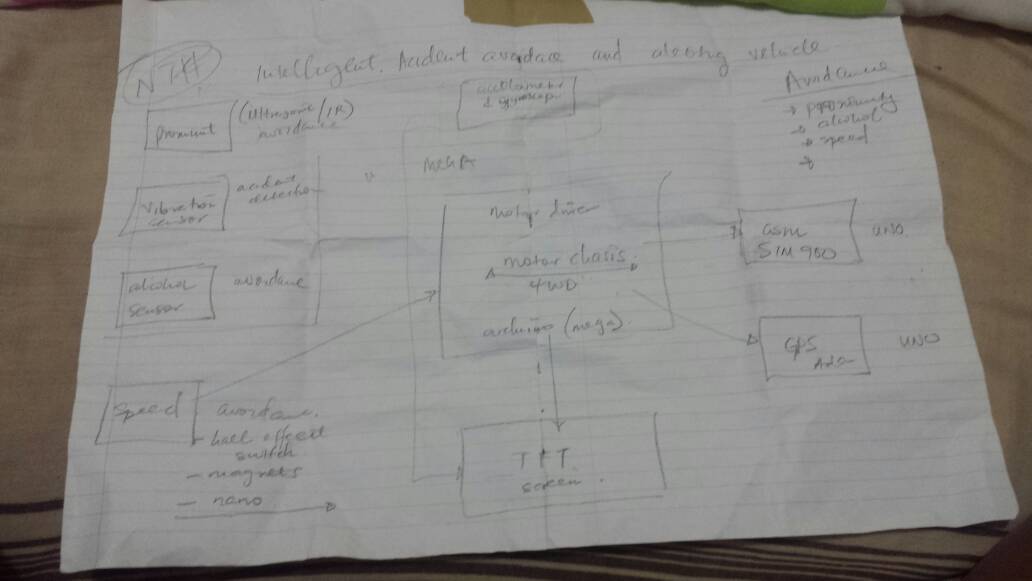 NTH
Intelligent. Acident avoidace and alerting vehicle
accelometer
& gyroscope
Avoidance
→ proximity
→ alcohol
→ speed
→
(Ultrasonic/IR)
avoidance
Vibration
sensor
acident
detection
alcohol
sensor
avoidance
MEGA
motor driver
motor chasis.
4WD
arduino (mega).
GSM
SIM 900
UNO
GPS
Ada
UNO
Speed
avoidance.
- hall effect
switch
- magnets
- nano
TFT
screen.